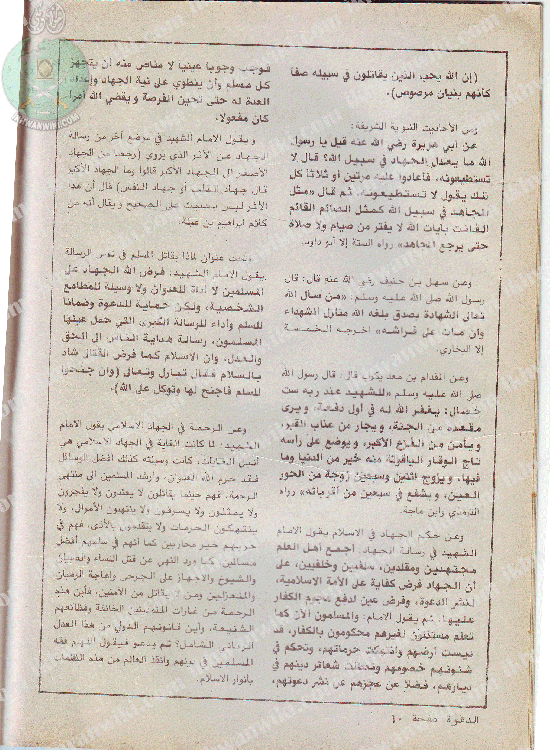 (إن الله يحب الذين يقاتلون في سبيله صفا
كأنهم بنيان مرصوص).
ومن الأحاديث النبوية الشريفة:
عن أبي هريرة رضي الله عنه قيل يا رسول
الله ما يعدل الجهاد في سبيل الله؟ قال لا
تستطيعونه، فأعادوا عليه مرتين أو ثلاثا كل
ذلك يقول لا تستطيعونه، ثم قال «مثل
المجاهد في سبيل الله كمثل الصائم القائم
القانت بآيات الله لا يفتر من صيام ولا صلاة
حتى يرجع المجاهد» رواه الستة إلا أبو داود.
وعن سهل بن حنيف رضي الله عنه قال: قال
رسول الله صلى الله عليه وسلم: «من سأل الله
تعالى الشهادة بصدق بلغه الله منازل الشهداء
وإن مات على فراشه» أخرجه الخمسة
إلا البخاري.
وعن المقدام بن معد يكرب قال: قال رسول الله
صلى الله عليه وسلم «للشهيد عند ربه ست
خصال: يغفر الله له في أول دفعة، ويرى
مقعده من الجنة، ويجار من عذاب القبر،
ويأمن من الفزع الأكبر، ويوضع على رأسه
تاج الوقار الياقوتة منه خير من الدنيا وما
فيها، ويزوج اثنين وسبعين زوجة من الحور
العين، ويشفع في سبعين من أقربائه» رواه
الترمذي وابن ماجة.
وعن حكم الجهاد في الإسلام يقول الإمام
الشهيد في رسالة الجهاد: أجمع أهل العلم
مجتهدين ومقلدين، سلفيين وخلفيين، على
أن الجهاد فرض كفاية على الأمة الإسلامية،
لنشر الدعوة، وفرض عين لدفع هجوم الكفار
عليها. ثم يقول الإمام: والمسلمون الآن كما
تعلم مستذلون لغيرهم محكومون بالكفار، قد
ديست أرضهم وانتهكت حرماتهم، وتحكم في
شئونهم خصومهم وتعطلت شعائر دينهم في
ديارهم، فضلا عن عجزهم عن نشر دعوتهم،
فوجب وجوبا عينيا لا مناص منه أن يتجهز
كل مسلم وأن ينطوي على نية الجهاد وإعداد
العدة له حتى تحين الفرصة ويقضي الله أمرا
كان مفعولا.
ويقول الامام الشهيد في موضع آخر من رسالة
الجهاد عن الأثر الذي يروي (رجعنا من الجهاد
الأصغر إلى الجهاد الأكبر قالوا وما الجهاد الأكبر
قال جهاد القلب أو جهاد النفس) قال أن هذا
الأثر ليس بحديث على الصحيح ويقال أنه من
كلام ابراهيم بن عبلة.
وتحت عنوان لماذا يقاتل المسلم في نفس الرسالة
يقول الامام الشهيد: فرض الله الجهاد على
المسلمين لا أداة للعدوان ولا وسيلة للمطامع
الشخصية، ولكن حماية للدعوة وضمانا
للسلم وأداء للرسالة الكبرى التي حمل عبئها
المسلمون، رسالة هداية الناس إلى الحق
والعدل، وان الاسلام كما فرض القتال شاد
بالسلام فقال تبارك وتعالى (وإن جنحوا
للسلم فاجنح لها وتوكل على الله).
وعن الرحمة في الجهاد الاسلامي يقول الامام
الشهيد: لما كانت الغاية في الجهاد الاسلامي هي
أنبل الغايات، كانت وسيلته كذلك أفضل الوسائل
فقد حرم الله العدوان، وأرشد المسلمين إلى منتهى
الرحمة، فهم حينما يقاتلون لا يعتدون ولا يفجرون
ولا يمثلون ولا يسرقون ولا ينتهبون الأموال، ولا
ينتهكون الحرمات ولا يتقدمون بالأذى، فهم في
حربهم خير محاربين كما أنهم في سلمهم أفضل
مسالمين كما ورد النهي عن قتل النساء والصبيان
والشيوخ والاجهاز على الجرحى وإهاجة الرهبان
والمنعزلين ومن لا يقاتل من الآمنين، فأين هذه
الرحمة من غارات المتمدينين الخانقة وفظائعهم
الشنيعة، وأين قانونهم الدولي من هذا العدل
الرباني الشامل؟ ثم يدعو فيقول اللهم فقه
المسلمين في دينهم وأنقذ العالم من هذه الظلمات
بأنوار الاسلام.
الدعوة صفحة ١٠
IKHWANWIKI.COM